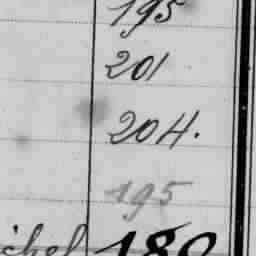 195
201
204.
195
ichel 180